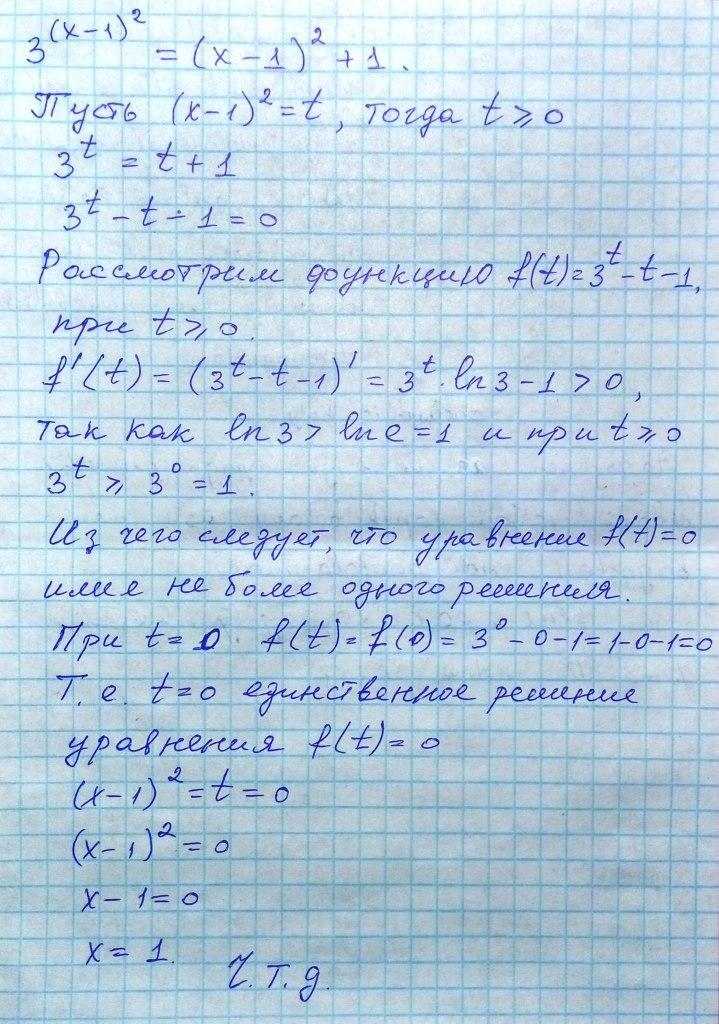 3^{(x-1)^2} = (x-1)^2 + 1.
Пусть (x-1)^2 = t, тогда t ⩾ 0
3^t = t + 1
3^t - t - 1 = 0
Рассмотрим функцию f(t) = 3^t - t - 1,
при t ⩾ 0.
f'(t) = (3^t - t - 1)' = 3^t · ln 3 - 1 > 0,
так как ln 3 > ln e = 1 и при t ⩾ 0
3^t ⩾ 3^0 = 1.
Из чего следует, что уравнение f(t) = 0
имее не боме одного решения.
При t = 0 f(t) = f(0) = 3^0 - 0 - 1 = 1 - 0 - 1 = 0
Т. е. t = 0 единственное решение
уравнения f(t) = 0
(x-1)^2 = t = 0
(x-1)^2 = 0
x - 1 = 0
x = 1.
Ч.т.д.